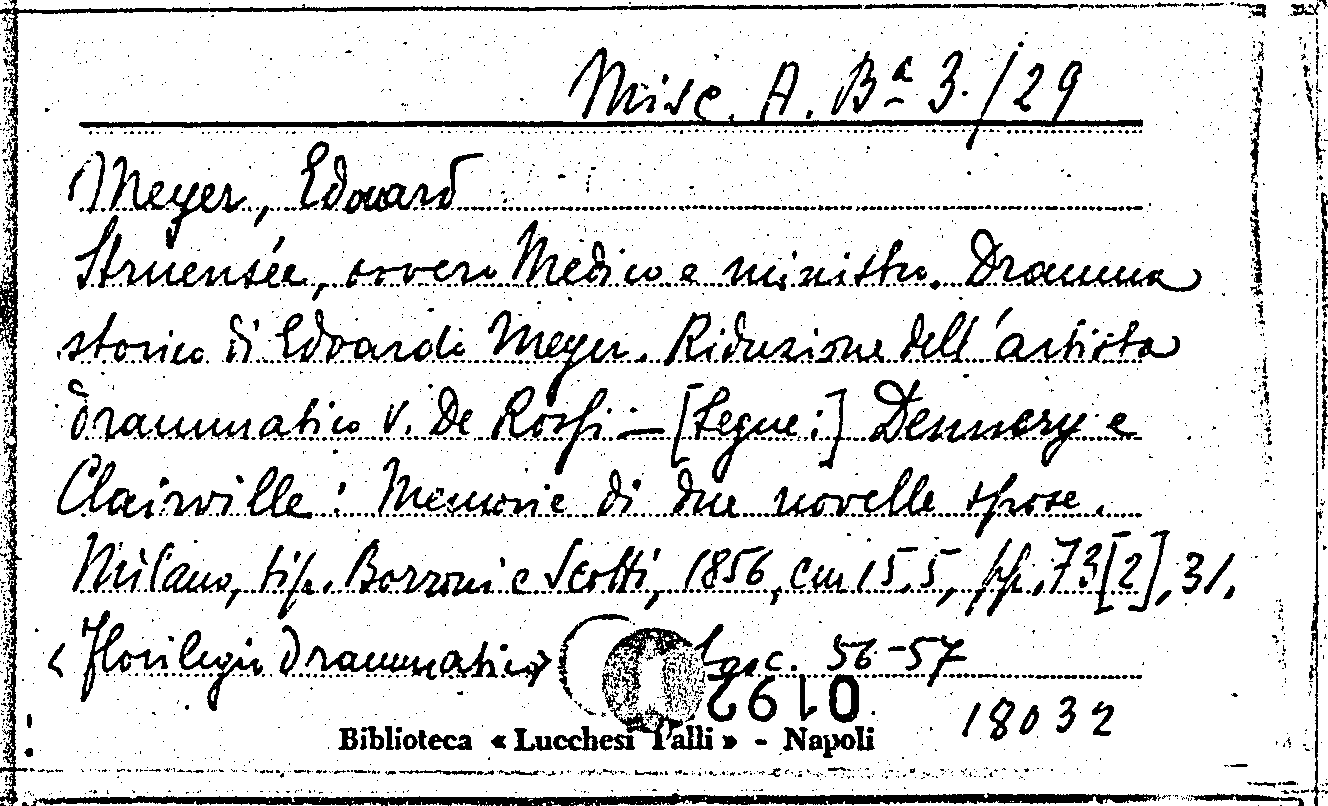 Misc. A. Bª 3./29
Meyer, Edouard
Struensée, ovvero Medico e ministro. Dramma
storico di Edoardo Meyer. Riduzione dell'artista
drammatico V. De Rossi — [Segue:] Dennery e
Clairville: Memorie di due novelle spose.
Milano, tip. Borroni e Scotti, 1856, cm 15.5, pp. 73[2], 31.
«Florilegio drammatico» fasc. 56-57
0192
18032
Biblioteca « Lucchesi Palli » - Napoli